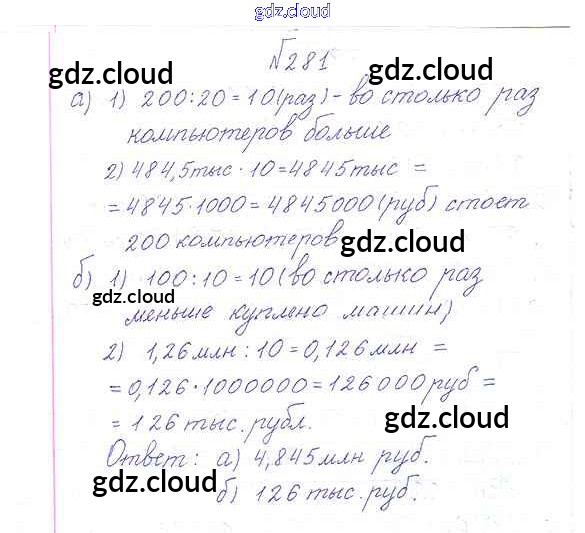 gdz.cloud
№281
gdz.cloud gdz.cloud
а) 1) 200:20=10(раз)-во столько раз
компьютеров больше
2) 484,5тыс·10=4845тыс =
=4845·1000=4845000(руб) стоет
200 компьютеров
gdz.cloud
б) 1) 100:10=10(во столько раз
gdz.cloud
меньше куплено машин)
2) 1,26млн:10=0,126млн =
=0,126·1000000=126000руб=
=126тыс.рубл.
gdz.cloud
Ответ: а) 4,845млн руб.
gdz.cloud
б) 126тыс.руб.